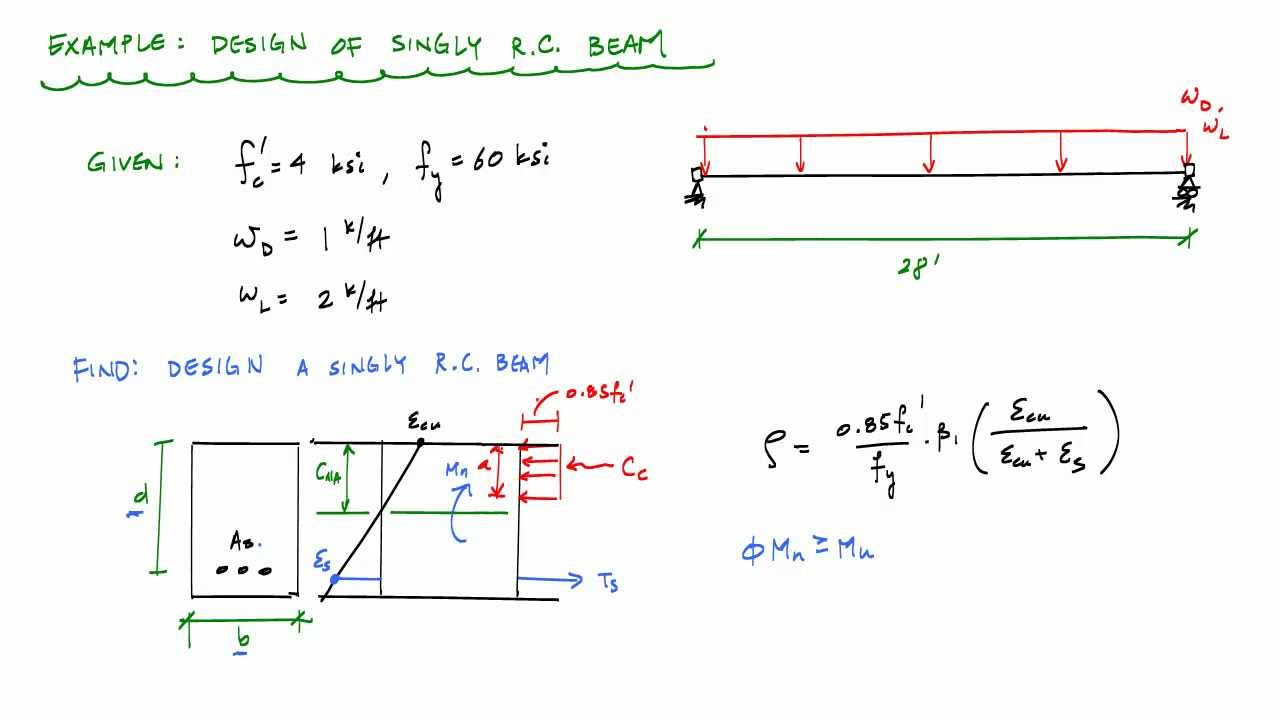 EXAMPLE: DESIGN OF SINGLY R.C. BEAM
GIVEN: fc' = 4 ksi, fy = 60 ksi
ωD = 1 k/ft
ωL = 2 k/ft
ωD,
ωL
28'
FIND: DESIGN A SINGLY R.C. BEAM
d
As.
b
εcu
CN/A
εs
Mn
a
0.85fc'
Cc
Ts
ρ = 0.85fc'/fy · β1 (εcu/(εcu + εs))
ϕ Mn ≥ Mu